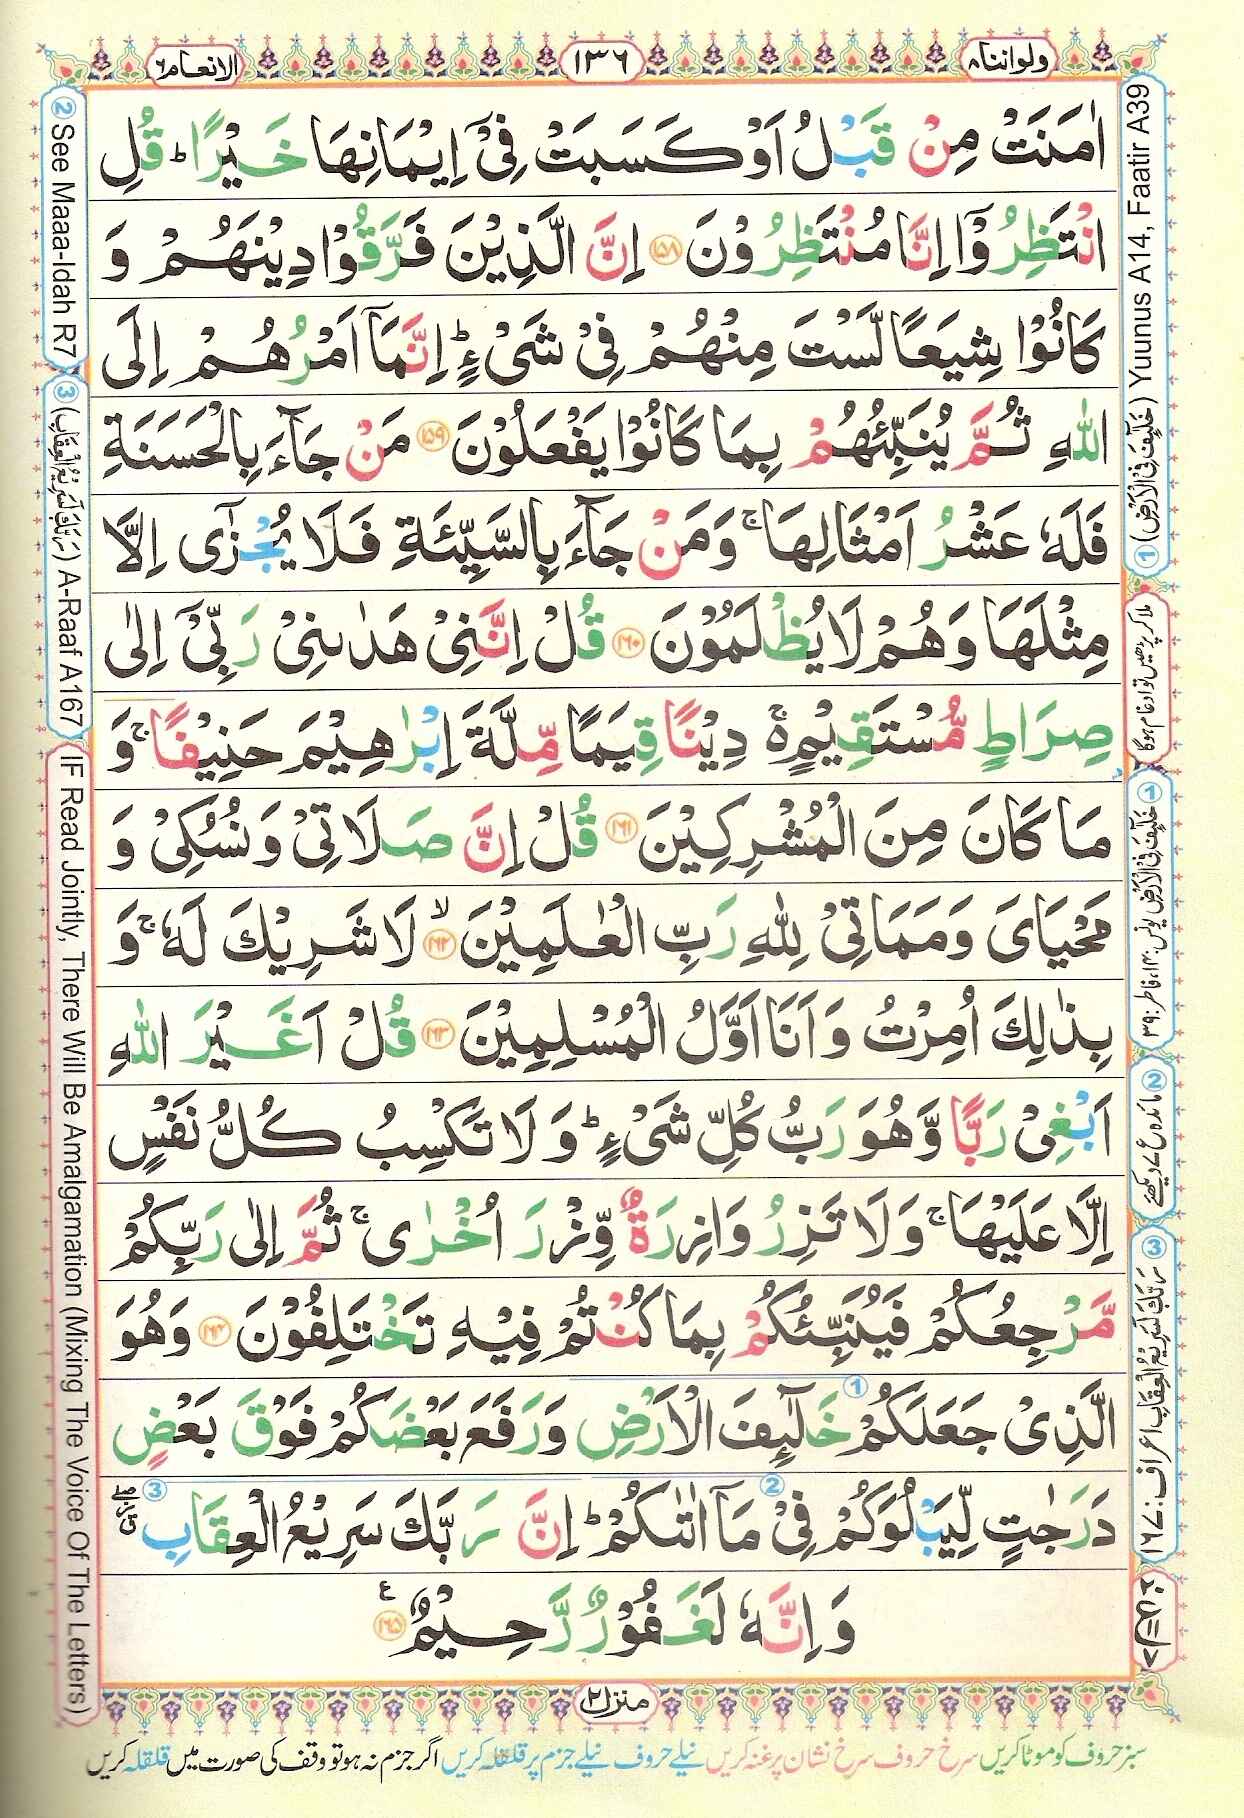 ولواننا ٨
١٣٦
الانعام ٦
اٰمَنَتْ مِنْ قَبْلُ اَوْ كَسَبَتْ فِىْۤ اِيْمَانِهَا خَيْرًا ؕ قُلِ
انْتَظِرُوْۤا اِنَّا مُنْتَظِرُوْنَ ﴿۱۵۸﴾ اِنَّ الَّذِيْنَ فَرَّقُوْا دِيْنَهُمْ وَ
كَانُوْا شِيَعًا لَّسْتَ مِنْهُمْ فِىْ شَىْءٍ ؕ اِنَّمَاۤ اَمْرُهُمْ اِلَى
اللّٰهِ ثُمَّ يُنَبِّئُهُمْ بِمَا كَانُوْا يَفْعَلُوْنَ ﴿۱۵۹﴾ مَنْ جَآءَ بِالْحَسَنَةِ
فَلَهٗ عَشْرُ اَمْثَالِهَا ۚ وَمَنْ جَآءَ بِالسَّيِّئَةِ فَلَا يُجْزٰٓى اِلَّا
مِثْلَهَا وَهُمْ لَا يُظْلَمُوْنَ ﴿۱۶۰﴾ قُلْ اِنَّنِىْ هَدٰىنِىْ رَبِّىْۤ اِلٰى
صِرَاطٍ مُّسْتَقِيْمٍ ۬ۚ دِيْنًا قِيَمًا مِّلَّةَ اِبْرٰهِيْمَ حَنِيْفًا ۚ وَ
مَا كَانَ مِنَ الْمُشْرِكِيْنَ ﴿۱۶۱﴾ قُلْ اِنَّ صَلَاتِىْ وَنُسُكِىْ وَ
مَحْيَاىَ وَمَمَاتِىْ لِلّٰهِ رَبِّ الْعٰلَمِيْنَ ۙ﴿۱۶۲﴾ لَا شَرِيْكَ لَهٗ ۚ وَ
بِذٰلِكَ اُمِرْتُ وَاَنَا اَوَّلُ الْمُسْلِمِيْنَ ﴿۱۶۳﴾ قُلْ اَغَيْرَ اللّٰهِ
اَبْغِىْ رَبًّا وَّهُوَ رَبُّ كُلِّ شَىْءٍ ؕ وَلَا تَكْسِبُ كُلُّ نَفْسٍ
اِلَّا عَلَيْهَا ۚ وَلَا تَزِرُ وَازِرَةٌ وِّزْرَ اُخْرٰى ۚ ثُمَّ اِلٰى رَبِّكُمْ
مَّرْجِعُكُمْ فَيُنَبِّئُكُمْ بِمَا كُنْتُمْ فِيْهِ تَخْتَلِفُوْنَ ﴿۱۶۴﴾ وَهُوَ
الَّذِىْ جَعَلَكُمْ خَلٰٓئِفَ ① الْاَرْضِ وَرَفَعَ بَعْضَكُمْ فَوْقَ بَعْضٍ
دَرَجٰتٍ لِّيَبْلُوَكُمْ فِىْ مَاۤ اٰتٰٮكُمْ ② ؕ اِنَّ رَبَّكَ سَرِيْعُ الْعِقَابِ ③
وَاِنَّهٗ لَغَفُوْرٌ رَّحِيْمٌ ﴿۱۶۵﴾ ع
منزل ۲
سبز حروف کو موٹا کریں سرخ حروف سرخ نشان پر غنہ کریں نیلے حروف نیلے جزم پر قلقلہ کریں اگر جزم نہ ہو تو وقف کی صورت میں قلقلہ کریں
① (خَلٰٓئِفَ فِى الْاَرْضِ) Yuunus A14, Faatir A39
ملا کر پڑھیں تو ادغام ہوگا
① خَلٰٓئِفَ فِى الْاَرْضِ یونس:۱۴، فاطر:۳۹
② مائدہ ع ۷ دیکھئے
③ رَبَّكَ لَسَرِيْعُ الْعِقَابِ اعراف:۱۶۷
② See Maaa-Idah R7
③ (رَبَّكَ لَسَرِيْعُ الْعِقَابِ) A-Raaf A167
IF Read Jointly, There Will Be Amalgamation (Mixing The Voice Of The Letters)